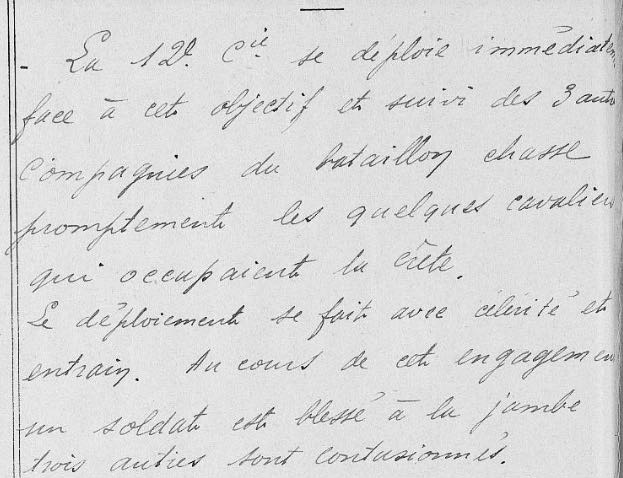 - La 12e Cie se déploie immédiatem
face à cet objectif et suivi des 3 autr
Compagnies du bataillon chasse
promptement les quelques cavalier
qui occupaient la crête.
Le déploiement se fait avec célérité et
entrain. Au cours de cet engagemen
un soldat est blessé à la jambe
trois autres sont contusionnés.